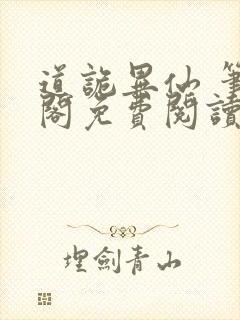 道詭異仙 筆
閣免費閱讀
埋劍青山